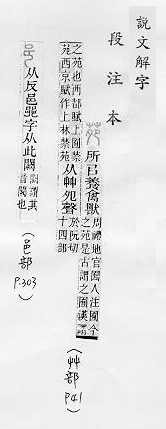 說文解字
段注本
苑 所㠯養禽獸 周禮地官囿人注囿今
之苑是古謂之囿漢謂
之苑也西都賦上囿禁
苑西京賦作上林禁苑 从艸夗聲 於阮切
十四部
(艸部 P.41)
从反邑 字从此闕 闕謂其
音闕也
(邑部 P.303)